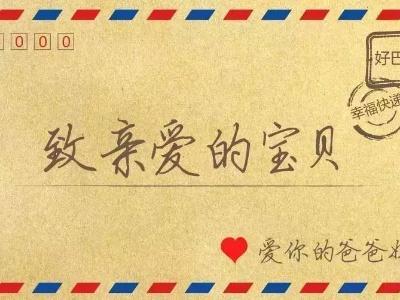 0000
好巴
幸福快递
致亲爱的宝贝
爱你的爸爸